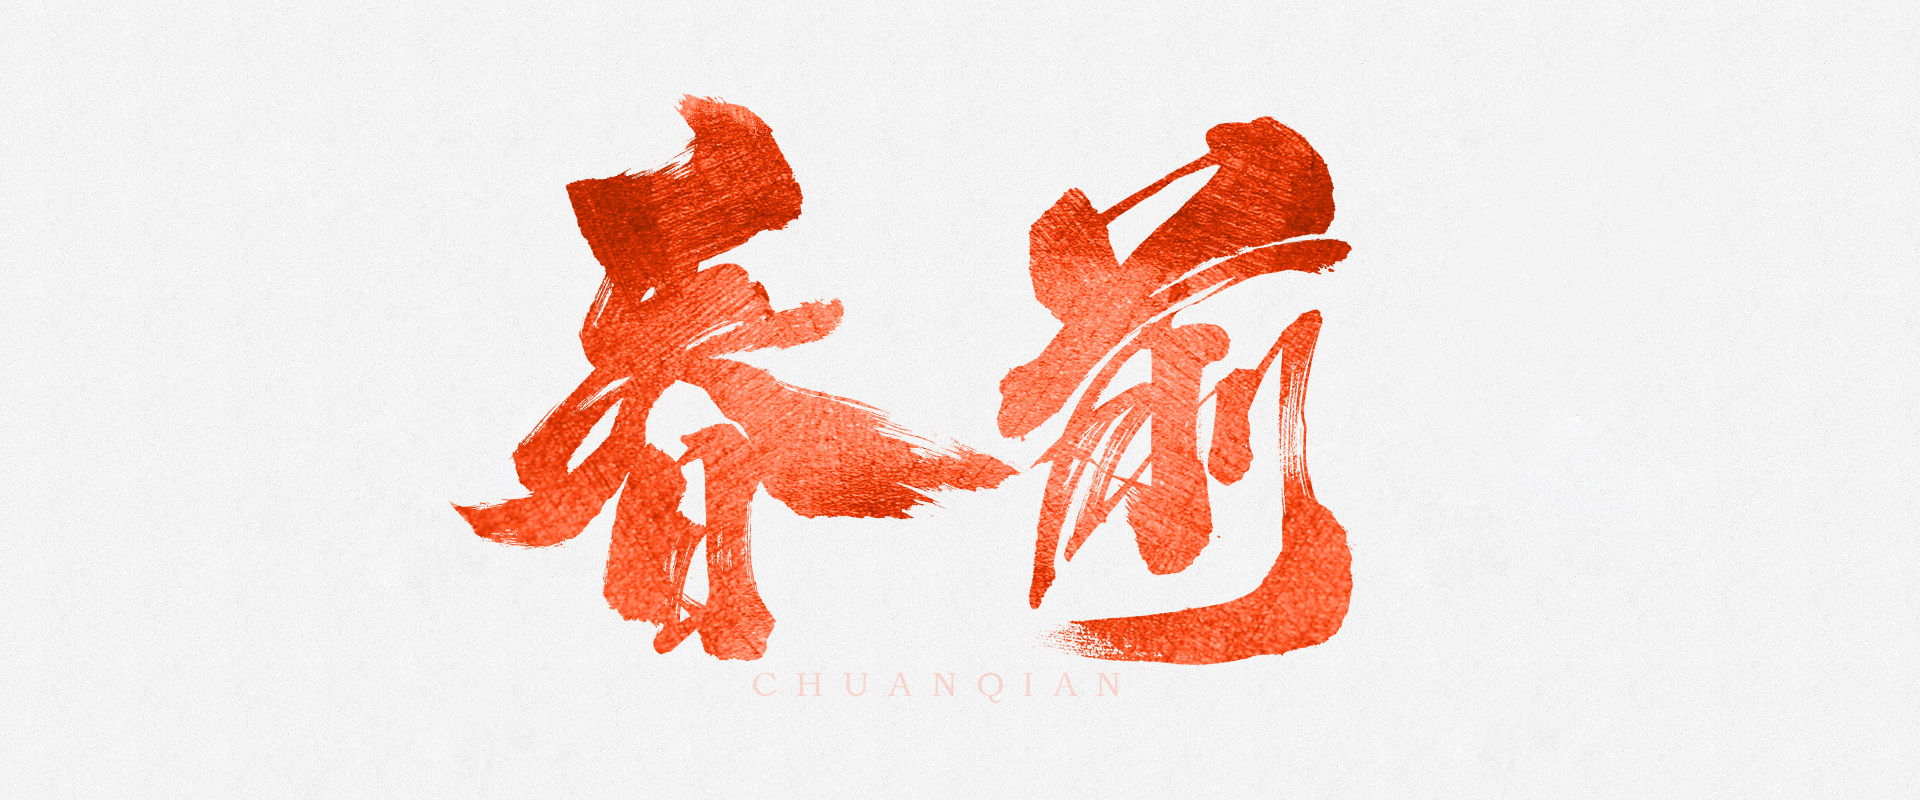 春前
CHUANQIAN